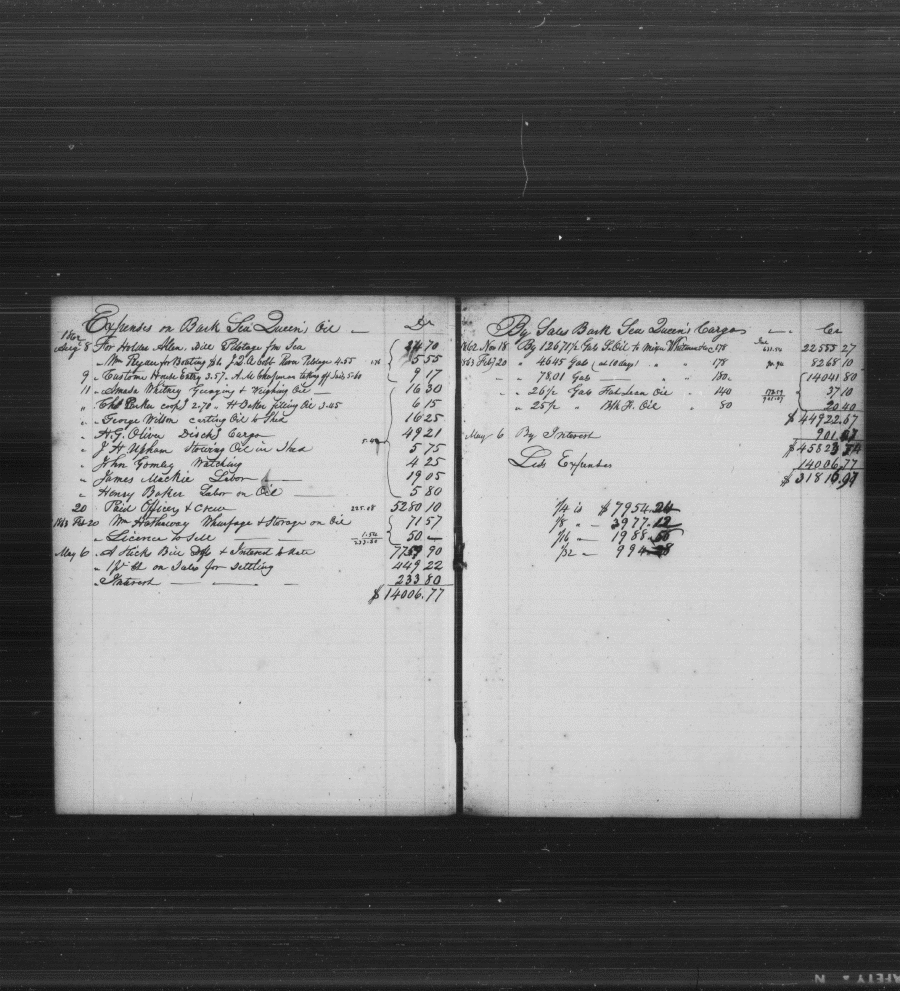 Expenses on Bark Sea Queen's Oil — Dr
1862
Aug 8 To Holder Allen, Bill Pilotage for Sea 24 70
" Wm for Boating &c J. D. Pilotage 4.55 5 55
9 " Custom House Entry 3.57. A. M. Chapman taking off Sails 5.60 9 17
11 " Smith Whitney Gauging & Weighing Oil — 16 30
" " Chs Parker coop 2.70 " H Baker filling Oil 3.45 6 15
" " George Wilson carting Oil to Shed 16 25
" " H. G. Oliver Dischg Cargo 49 21
" " J. H. Upham Stowing Oil in Shed 5 75
" " John Gomley Watching 4 25
" " James Mackie Labor — 19 05
" " Henry Baker Labor on Oil — 5 80
20 " Paid Officers & Crew 225.08 5280 10
1863 Feb 20 " Wm Hathaway Wharfage & Storage on Oil 71 57
" Licence to Sell — — 1.54 50 —
May 6 " A Hicks Bill & Interest to date 7759 90
" 1 pr Ct on Sales for Settling 449 22
" Interest — — — 233 80
$ 14006.77
By Sales Bark Sea Queen's Cargo — . Cr
1862 Nov 18 By 12671½ Gals S. Oil to Whitman &c 178 22555 27
1863 Feb 20 " 4645 Gals (at 10 days) " " 178 8268 10
— " 7801 Gals — " 180 14041 80
— " 26½ Gals Oil " 140 37 10
— " 25½ " Blk F. Oil " 80 20 40
$ 44922.67
May 6 By Interest 901.07
$ 45823 74
Less Expenses 14006.77
$ 31816.97
1/4 is $ 7954.24
1/8 " — 3977.12
1/16 " — 1988.56
1/32 " — 994.28
N ▲ SAFETY